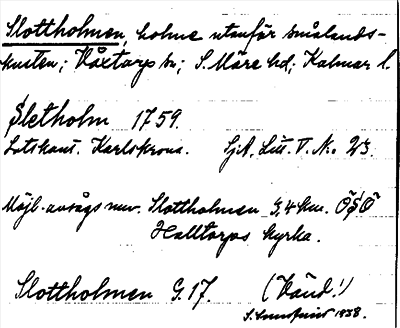 Slottholmen, holme utanför smålands-
kusten; Växtorps sn; S. Möre hd; Kalmar l.
Sletholm 1759.
Lotskont. Karlskrona. SjA. Litt. V. No 23.
Möjl. avsågs nuv. Slottholmen G,4 km. ÖSÖ
Halltorps kyrka.
Slottholmen G.17. (Vänd!)
1938.